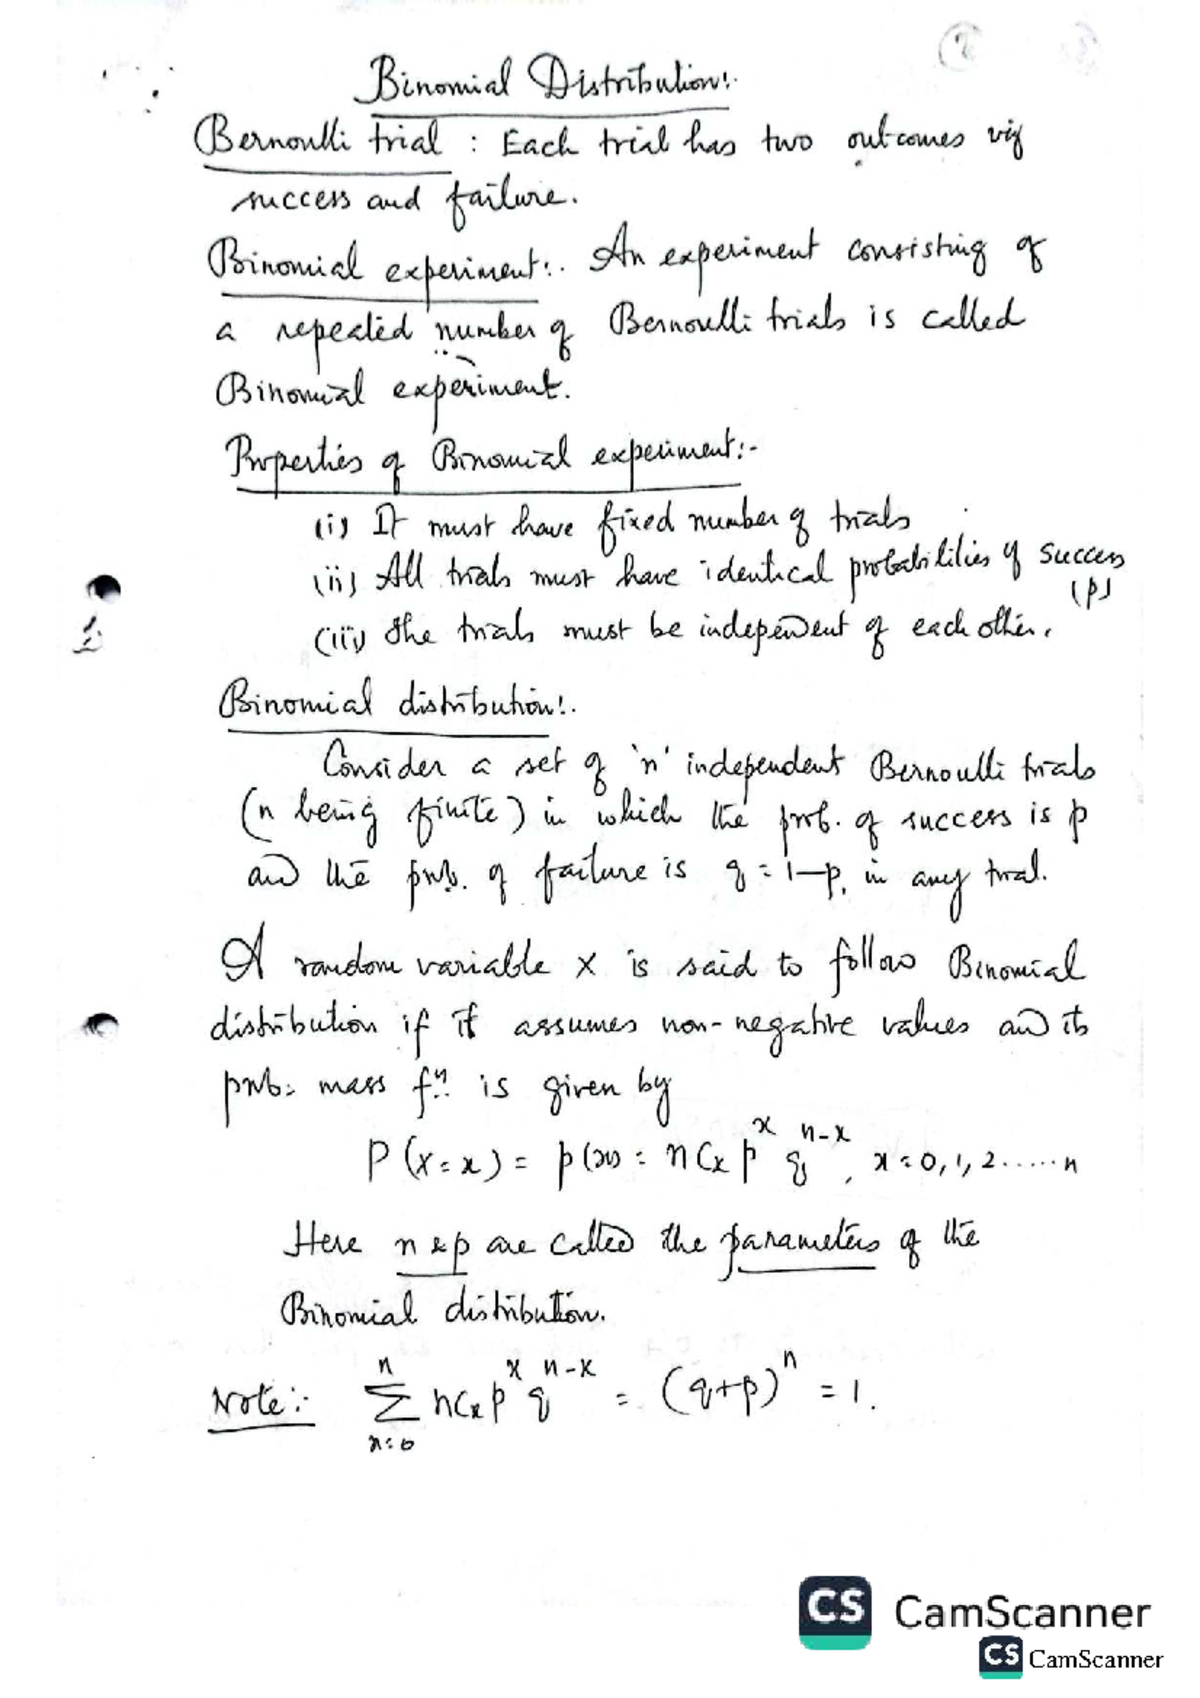 2
Binomial Distribution:.
Bernoulli trial : Each trial has two outcomes viz
success and failure.
Binomial experiment:. An experiment consisting of
a repeated number of Bernoulli trials is called
Binomial experiment.
Properties of Binomial experiment:-
(i) It must have fixed number of trials
(ii) All trials must have identical probabilities of success
(p)
(iii) The trials must be independent of each other.
Binomial distribution:.
Consider a set of 'n' independent Bernoulli trials
(n being finite) in which the prob. of success is p
and the prob. of failure is q = 1-p, in any trial.
A random variable X is said to follow Binomial
distribution if it assumes non-negative values and its
prob. mass fⁿ. is given by
P(X=x) = p(x) = nCₓ pˣ qⁿ⁻ˣ, x=0,1,2......n
Here n & p are called the parameters of the
Binomial distribution.
Note:- ∑ₓ₌₀ⁿ nCₓ pˣ qⁿ⁻ˣ = (q+p)ⁿ = 1.
CS CamScanner
CS CamScanner